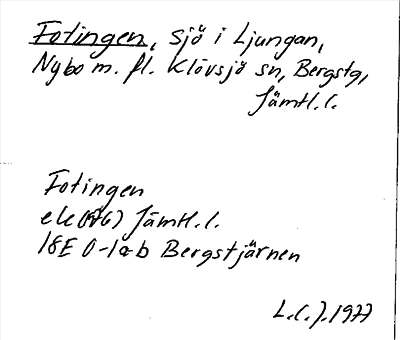 Fotingen, sjö i Ljungan,
Nybo m. fl. Klövsjö sn, Bergstg,
Jämtl.l.
Fotingen
ek (76) Jämtl.l.
18E 0-1a-b Bergstjärnen
L.C.J. 1977